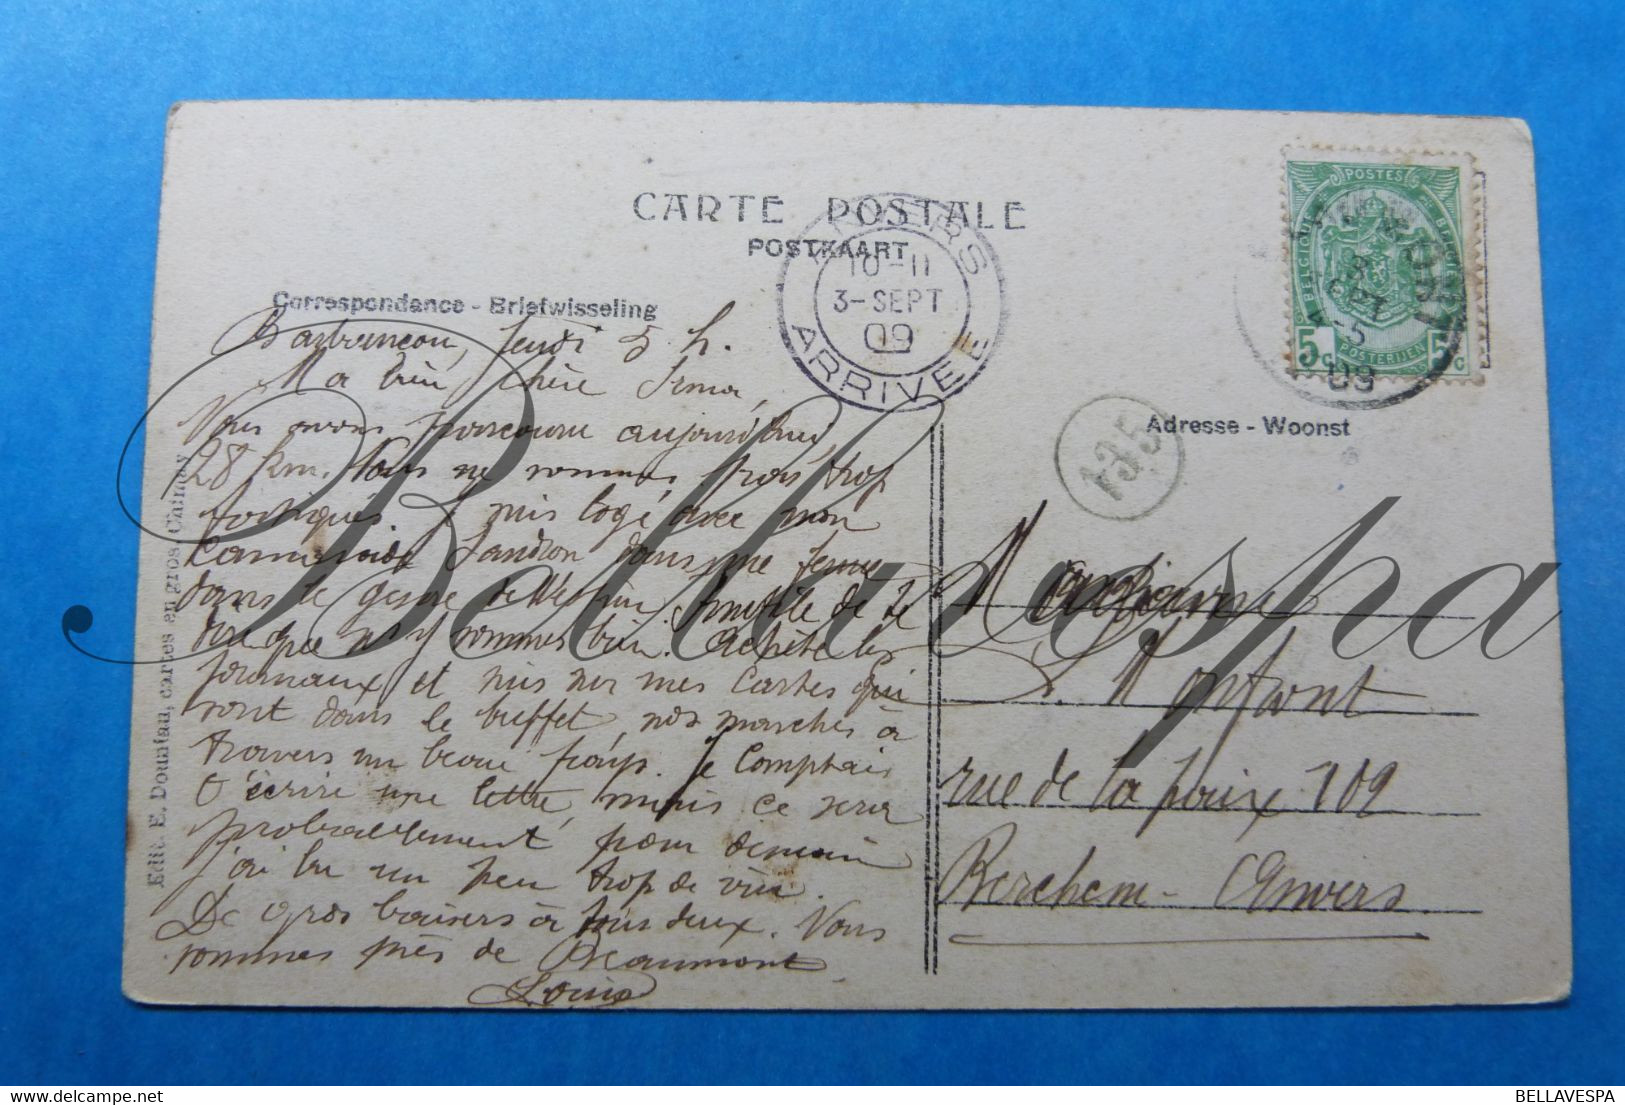 CARTE POSTALE
POSTKAART
Correspondance - Briefwisseling
Barbançon, Jeudi 5 h.
Ma bien chère Irma,
Vous avons parcouru aujourd'hui,
28 km. Nous ne sommes pas trop
fatigués. Je suis logé avec mon
camarade Landron dans une ferme
dans le genre de
que n'y sommes bien. Achète les
journaux et mis sur mes cartes qui
sont dans le buffet, nos marches à
travers un beau pays. Je comptais
t'écrire une lettre, mais ce sera
probablement pour demain
j'ai bu un peu trop de vin.
De gros baisers à tous deux. Vous
sommes près de Beaumont
Louis
Edit. E. Dountau, cartes en gros, Chimay
ANVERS
10-11
3-SEPT
09
ARRIVEE
POSTES
BELGIQUE
BELGIË
5c
POSTERIJEN
5c
3
SEPT
4-5
09
135
Adresse - Woonst
M
L. Montfont
rue de la paix 109
Berchem - Anvers
Bellavespa
BELLAVESPA